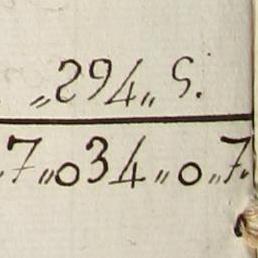 „294„ 5.
.7„034„0„7.